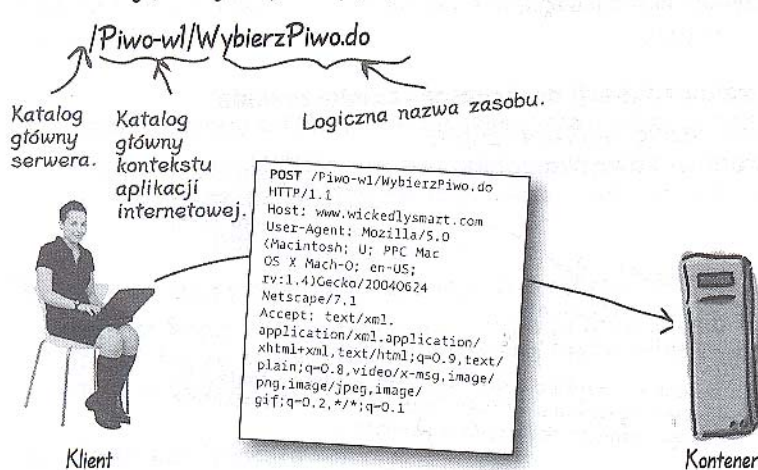 /Piwo-w1/WybierzPiwo.do
Katalog
główny
serwera.
Katalog
główny
kontekstu
aplikacji
internetowej.
Logiczna nazwa zasobu.
POST /Piwo-w1/WybierzPiwo.do
HTTP/1.1
Host: www.wickedlysmart.com
User-Agent: Mozilla/5.0
(Macintosh; U; PPC Mac
OS X Mach-O; en-US;
rv:1.4)Gecko/20040624
Netscape/7.1
Accept: text/xml.
application/xml.application/
xhtml+xml,text/html;q=0.9,text/
plain;q=0.8,video/x-msg,image/
png,image/jpeg,image/
gif;q=0.2,*/*;q=0.1
Klient
Kontener